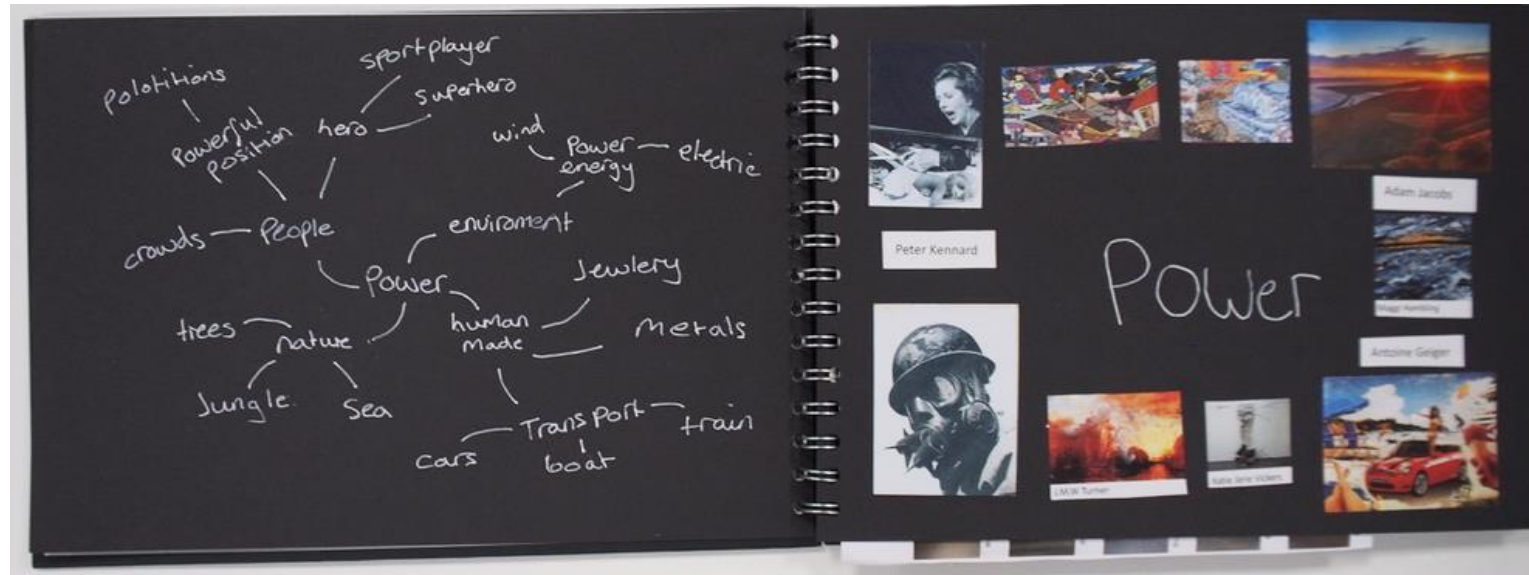 polotitions
sportplayer
superhero
powerful
position
hero
wind
Power
energy
electric
crowds
People
enviroment
Power
Jewlery
trees
nature
human
made
metals
Jungle
Sea
Transport
train
cars
boat
Peter Kennard
Power
Adam Jacobs
Maggi Hambling
Antoine Geiger
J.M.W Turner
Katie Jane Vickers